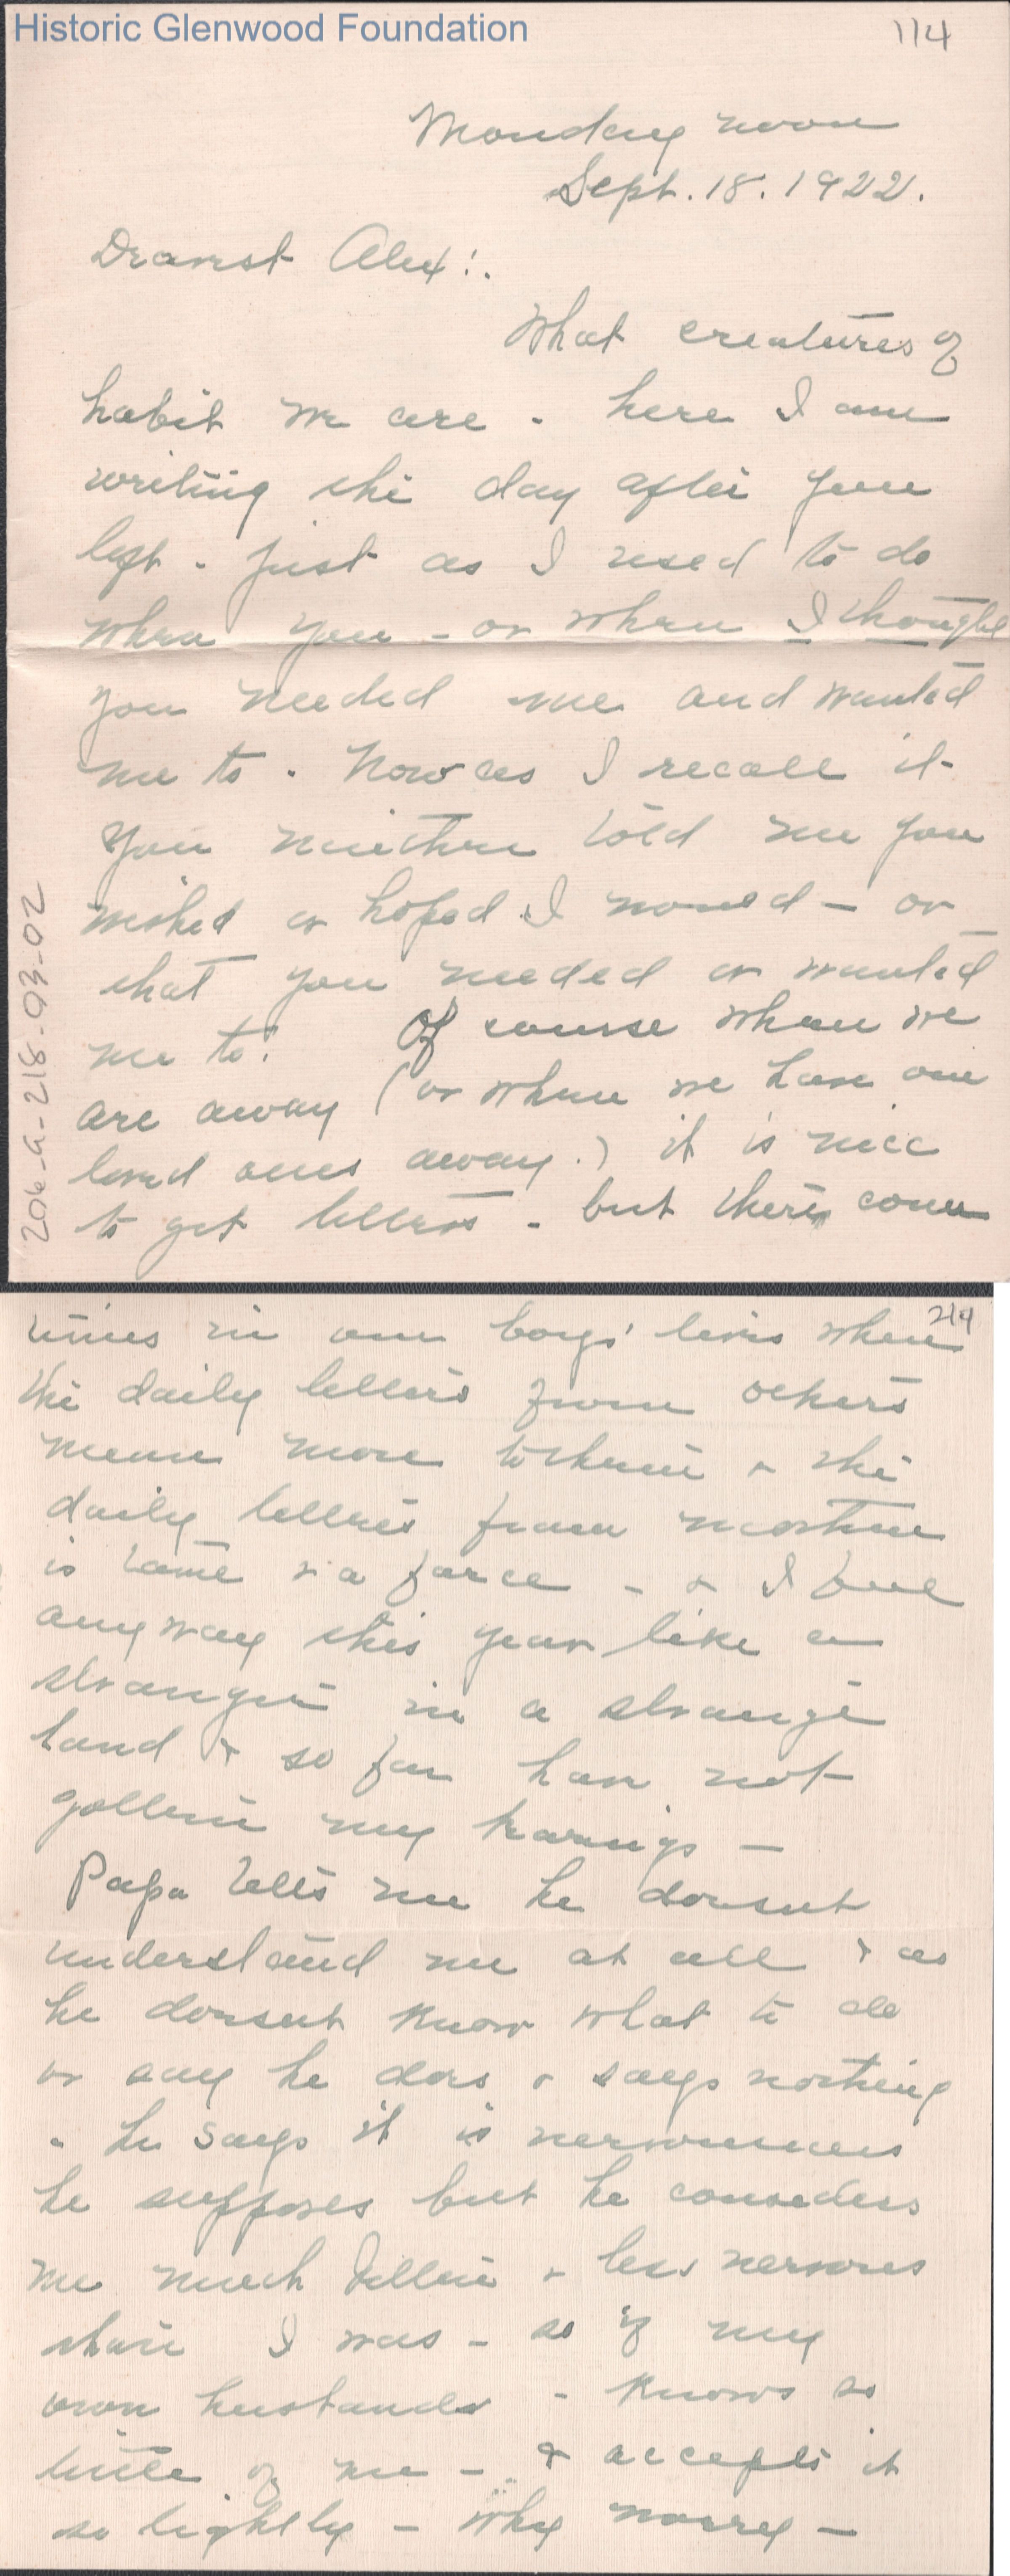 Historic Glenwood Foundation
1/4
Monday noon
Sept. 18. 1922.
Dearest Alex:.
What creatures of
habit we are - here I am
writing the day after you
left - just as I used to do
when you - or when I thought
you needed me and wanted
me to. Now as I recall it -
you neither told me you
wished or hoped I would - or
that you needed or wanted
me to! Of course when we
are away (or when we have our
loved ones away.) it is nice
to get letters - but there come
2/4
times in our boys' lives when
the daily letters from others
mean more to them & the
daily letters from mother
is tame & a farce - & I feel
anyway this year like a
stranger in a strange
land & so far have not
gotten my bearings -
Papa tells me he doesnt
understand me at all & as
he doesnt know what to do
or say he does & says nothing
- he says it is nervousness
he supposes but he considers
me much better & less nervous
than I was - as if my
own husband - knows so
little of me - & accepts it
so lightly - why worry -
206-a-218-93-02